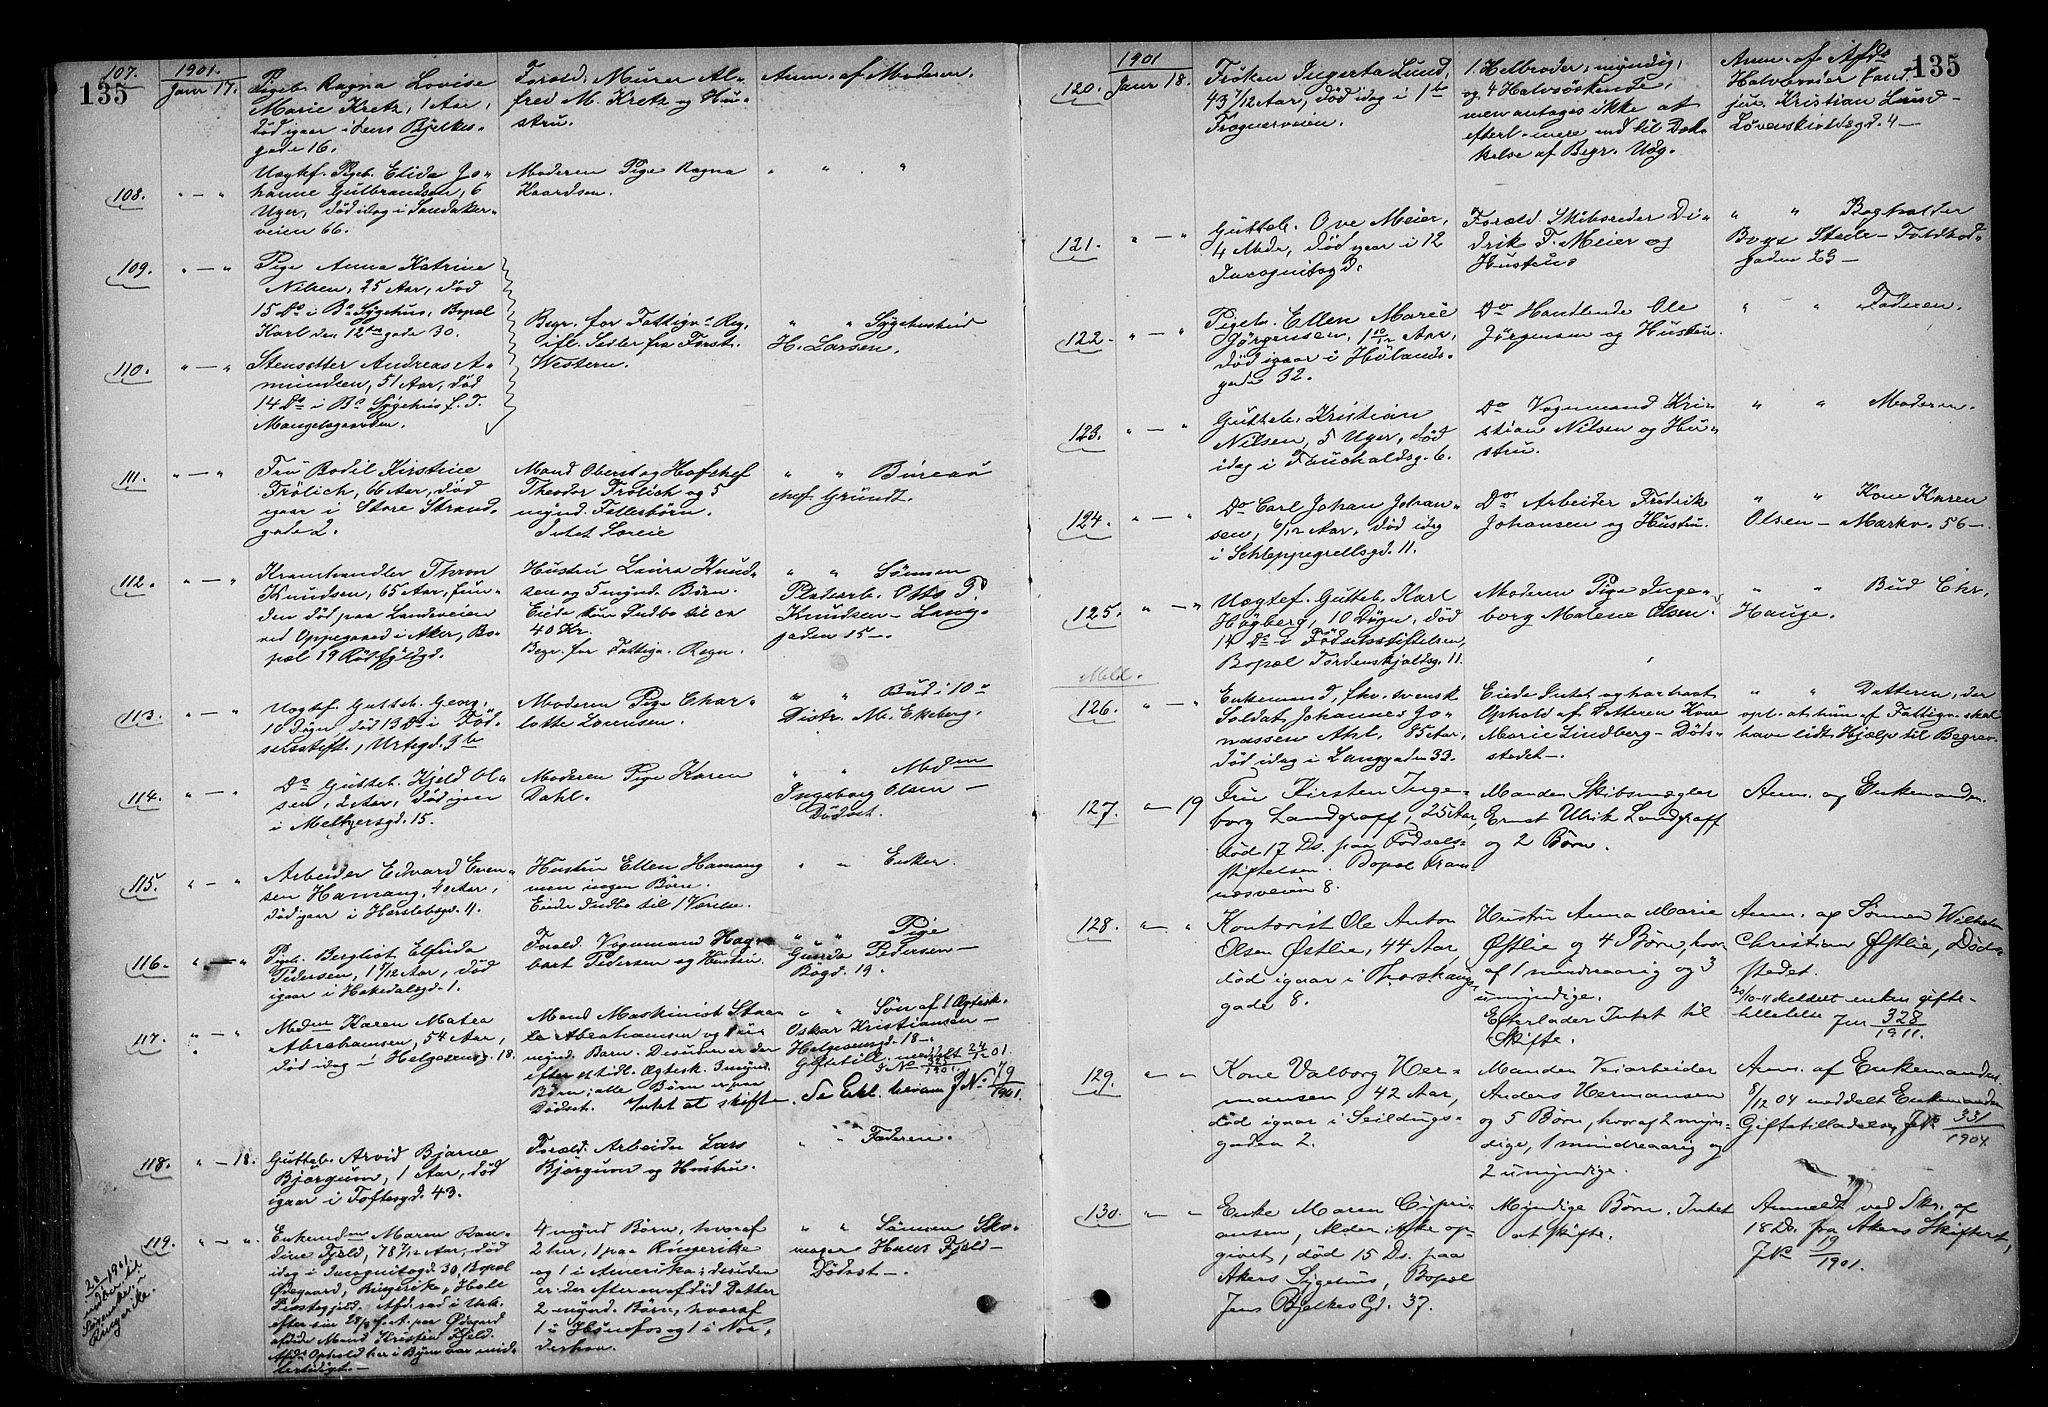 135
107.
1901.
Janr 17.
Pigeb. Ragna Lovise
Marie Kretz, 1 Aar,
død igaar i Jens Bjelkes-
gade 16.
Foræld. Murer Al-
fred M. Kretz og Hu-
stru.
Anm. af Moderen.
108.
" — "
Uegtef. Pigeb. Elida Jo-
hanne Gulbrandsen, 6
Uger, død idag i Sandaker-
veien 66.
Moderen Pige Ragna
Kaardsen.
" " "
109.
" — "
Pige Anna Katrine
Nilsen, 25 Aar, død
15 Ds i Bs Sygehus, Bopæl
Karl den 12tes gade 30.
Begr. for Fattigv. Reg.
ifl. Sedler fra Forst.
Western.
" " Sygehusbud
H. Larsen.
110.
" — "
Stensetter Andreas A-
mundsen, 51 Aar, død
14 Ds i Bs Sygehus f. T.
Mangelsgaarden.
111.
" — "
Fru Bodil Kirstine
Frölich, 66 Aar, død
igaar i Store Strand-
gade 2.
Mand Oberst og Hofchef
Theodor Frölich og 5
mynd. Fællesbörn.
" " Bureau
chef Grundt.
112.
" — "
Kramhandler Thron
Knudsen, 65 Aar, fun-
den død paa Landeveien
ved Oppegaard i Aker, Bo-
pæl 19
Hustru Laura Knud-
sen og 5 mynd. Børn.
Eiede kun Indbo til ca
40 Kr.
Begr. for Fattigv. Regn.
" " Sønnen
Pladearb. Otto P.
Knudsen — Lang-
gaden 15 —.
113.
" — "
Uegtef. Gutteb. Georg,
10 Døgn, død 13 Ds i Fød-
selsstift., Urtegd. 9 b
Moderen Pige Char-
lotte Lorensen.
" " Bud i 10 "
Distr. M. Ekeberg.
114.
" — "
Do Gutteb. Kjeld Ol-
sen, 2 Aar, død igaar
i Meltzersgd. 15.
Moderen Pige Karen
Dahl.
" " Mdmn
Ingeborg Olsen —
Dødsst.
115.
" — "
Arbeider Edvard Even-
sen Hamang, 40 Aar,
død igaar i Herslebsgd. 11.
Hustru Ellen Hamang
men ingen Børn.
Eiede Indbo til 1 Værelse.
" " Enken.
116.
" — "
Pigeb. Bergliot Elfrida
Pedersen, 1 7/12 Aar, død
igaar i Hakedalsgd. 1.
Foræld. Vognmand Hag-
bart Pedersen og Hustru.
" " Pige
Gunda Pedersen —
Bogd. 19.
117.
" — "
Mdmn Karen Matea
Abrahamsen, 54 Aar,
død idag i Helgesensg. 18.
Mand Maskinist Staa-
le Abrahamsen og 1 u-
mynd. Barn. Desuden er der
efter et tidl. Ægtesk. 3 mynd.
Børn; alle Børn er paa
Dødsst. Intet at skifte.
" " Søn af 1 Ægtesk.
Oskar Kristiansen —
Helgesensgd. 18 —.
Giftetill. meddelt 24/12 01.
J No 325/1901.
Se Erkl. herom J No 19/1901.
118.
" — 18.
Gutteb. Arvid Bjarne
Bjørgum, 1 Aar, død
igaar i Toftesgd. 43.
Foræld. Arbeider Lars
Bjørgum og Hustru.
" " Faderen.
119.
" — "
Enkemdmn Maren Ran-
dine Fjeld, 78 7/12 Aar, død
idag i Incognitogd. 30, Bopæl
Ødegaard, Ringerike, Hole
Præstegjeld. Afd. sad i Usk.
efter sin 28/ f. A. paa Ødegaard
afdøde Mand Kristian Fjeld.
Afds Ophold her i Byen var mid-
lertidigt. —
4 mynd Børn, hvoraf
2 her, 1 paa Ringerike
og 1 i Amerika; desuden
er der efter en afdød Datter
2 mynd. Børn, hvoraf
1 i Hønefos og 1 i Nor-
derhov.
" " Sønnen Sko-
mager Hans Fjeld —
Dødsst —.
Ringerike.
135
1901
120.
Janr 18.
Frøken Ingerta Lund,
43 7/12 Aar, død idag i 1 b
Frognerveien.
1 Helbroder, myndig,
og 4 Halvsøskende,
men antages ikke at
efterl. mere end til Dæk-
kelse af Begr. Udg.
Anm. af Afds
Halvbroder Cand.
jur. Kristian Lund —
Løvenskioldsgd. 4 —
121.
" — "
Gutteb. Ove Meier,
4 Mdr, død igaar i 12
Incognitogd.
Foræld. Skibsreder Di-
drik F. Meier og
Hustru.
" " Bogholder
Boye Stede — Toldbod-
gaden 23 —
122.
" — "
Pigeb. Ellen Marie
Jørgensen, 1 10/12 Aar,
død igaar i Hølands-
gade 32.
Do Handlende Ole
Jørgensen og Hustru.
" " Faderen.
123.
" — "
Gutteb. Kristian
Nilsen, 5 Uger, død
idag i Fauchaldsg. 6.
Do Vognmand Kri-
stian Nilsen og Hu-
stru.
" " Moderen.
124.
" — "
Do Carl Johan Johan-
sen, 6/12 Aar, død idag
i Schleppegrellsgd. 11.
Do Arbeider Fredrik
Johansen og Hustru.
" " Kone Karen
Olsen — Markv. 56 —.
125.
" — "
Uegtef. Gutteb. Karl
Høgberg, 10 Døgn, død
14 Ds i Fødselsstiftelsen,
Bopæl Tordenskjoldsg. 11.
Moderen Pige Inge-
borg Malene Olsen.
" " Bud Chr.
Hauge.
Meld.
126.
" — "
Enkemand, fhv. svensk
Soldat, Johannes Jo-
nassen Ahl, 85 Aar,
død idag i Langgaden 33.
Eiede Intet og har havt
Ophold af Datteren Kone
Marie Lindberg — Døds-
stedet —.
" " Datteren, der
opl. at hun af Fattigv. skal
have lidt Hjælp til Begrav-
127.
" — 19
Fru Kirsten Inge-
borg Landgraff, 25 Aar,
død 17 Ds. paa Fødsels-
stiftelsen. Bopæl Fram-
næsveien 8.
Manden Skibsmægler
Ernst Ulrik Landgraff
og 2 Børn.
Anm. af Enkemanden.
128.
" — "
Kontorist Ole Anton
Olsen Østlie, 44 Aar,
død igaar i Thorshaugs
gade 8.
Hustru Anna Marie
Østlie og 4 Børn, hvor-
af 1 mindreaarig og 3
umyndige.
Efterlader Intet til
Skifte.
Anm. af Sønnen Wilhelm
Christian Østlie, Døds-
stedet.
20/10-11 Meldelt enken gifte-
tilladelse Jnr 328/1911.
129.
" — "
Kone Valborg Her-
mansen, 42 Aar,
død igaar i Seildugs-
gaden 2.
Manden Veiarbeider
Anders Hermansen
og 5 Børn, hvoraf 2 myn-
dige, 1 mindreaarig og
2 umyndige.
Anm. af Enkemanden.
8/12 04 meddelt Enkemanden
Giftetilladelse JNo 331/1904
130.
" — "
Enke Maren Cypri-
ansen, Alder ikke op-
givet, død 15 Ds. paa
Akers Sygehus, Bopæl
Jens Bjelkes Gd. 37.
Myndige Børn. Intet
at skifte.
Anmeldt ved Skr. af
18 Ds. fra Akers Skifteret,
JNo 19/1901.